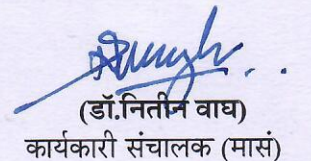 (डॉ.नितीन वाघ)
कार्यकारी संचालक (मासं)